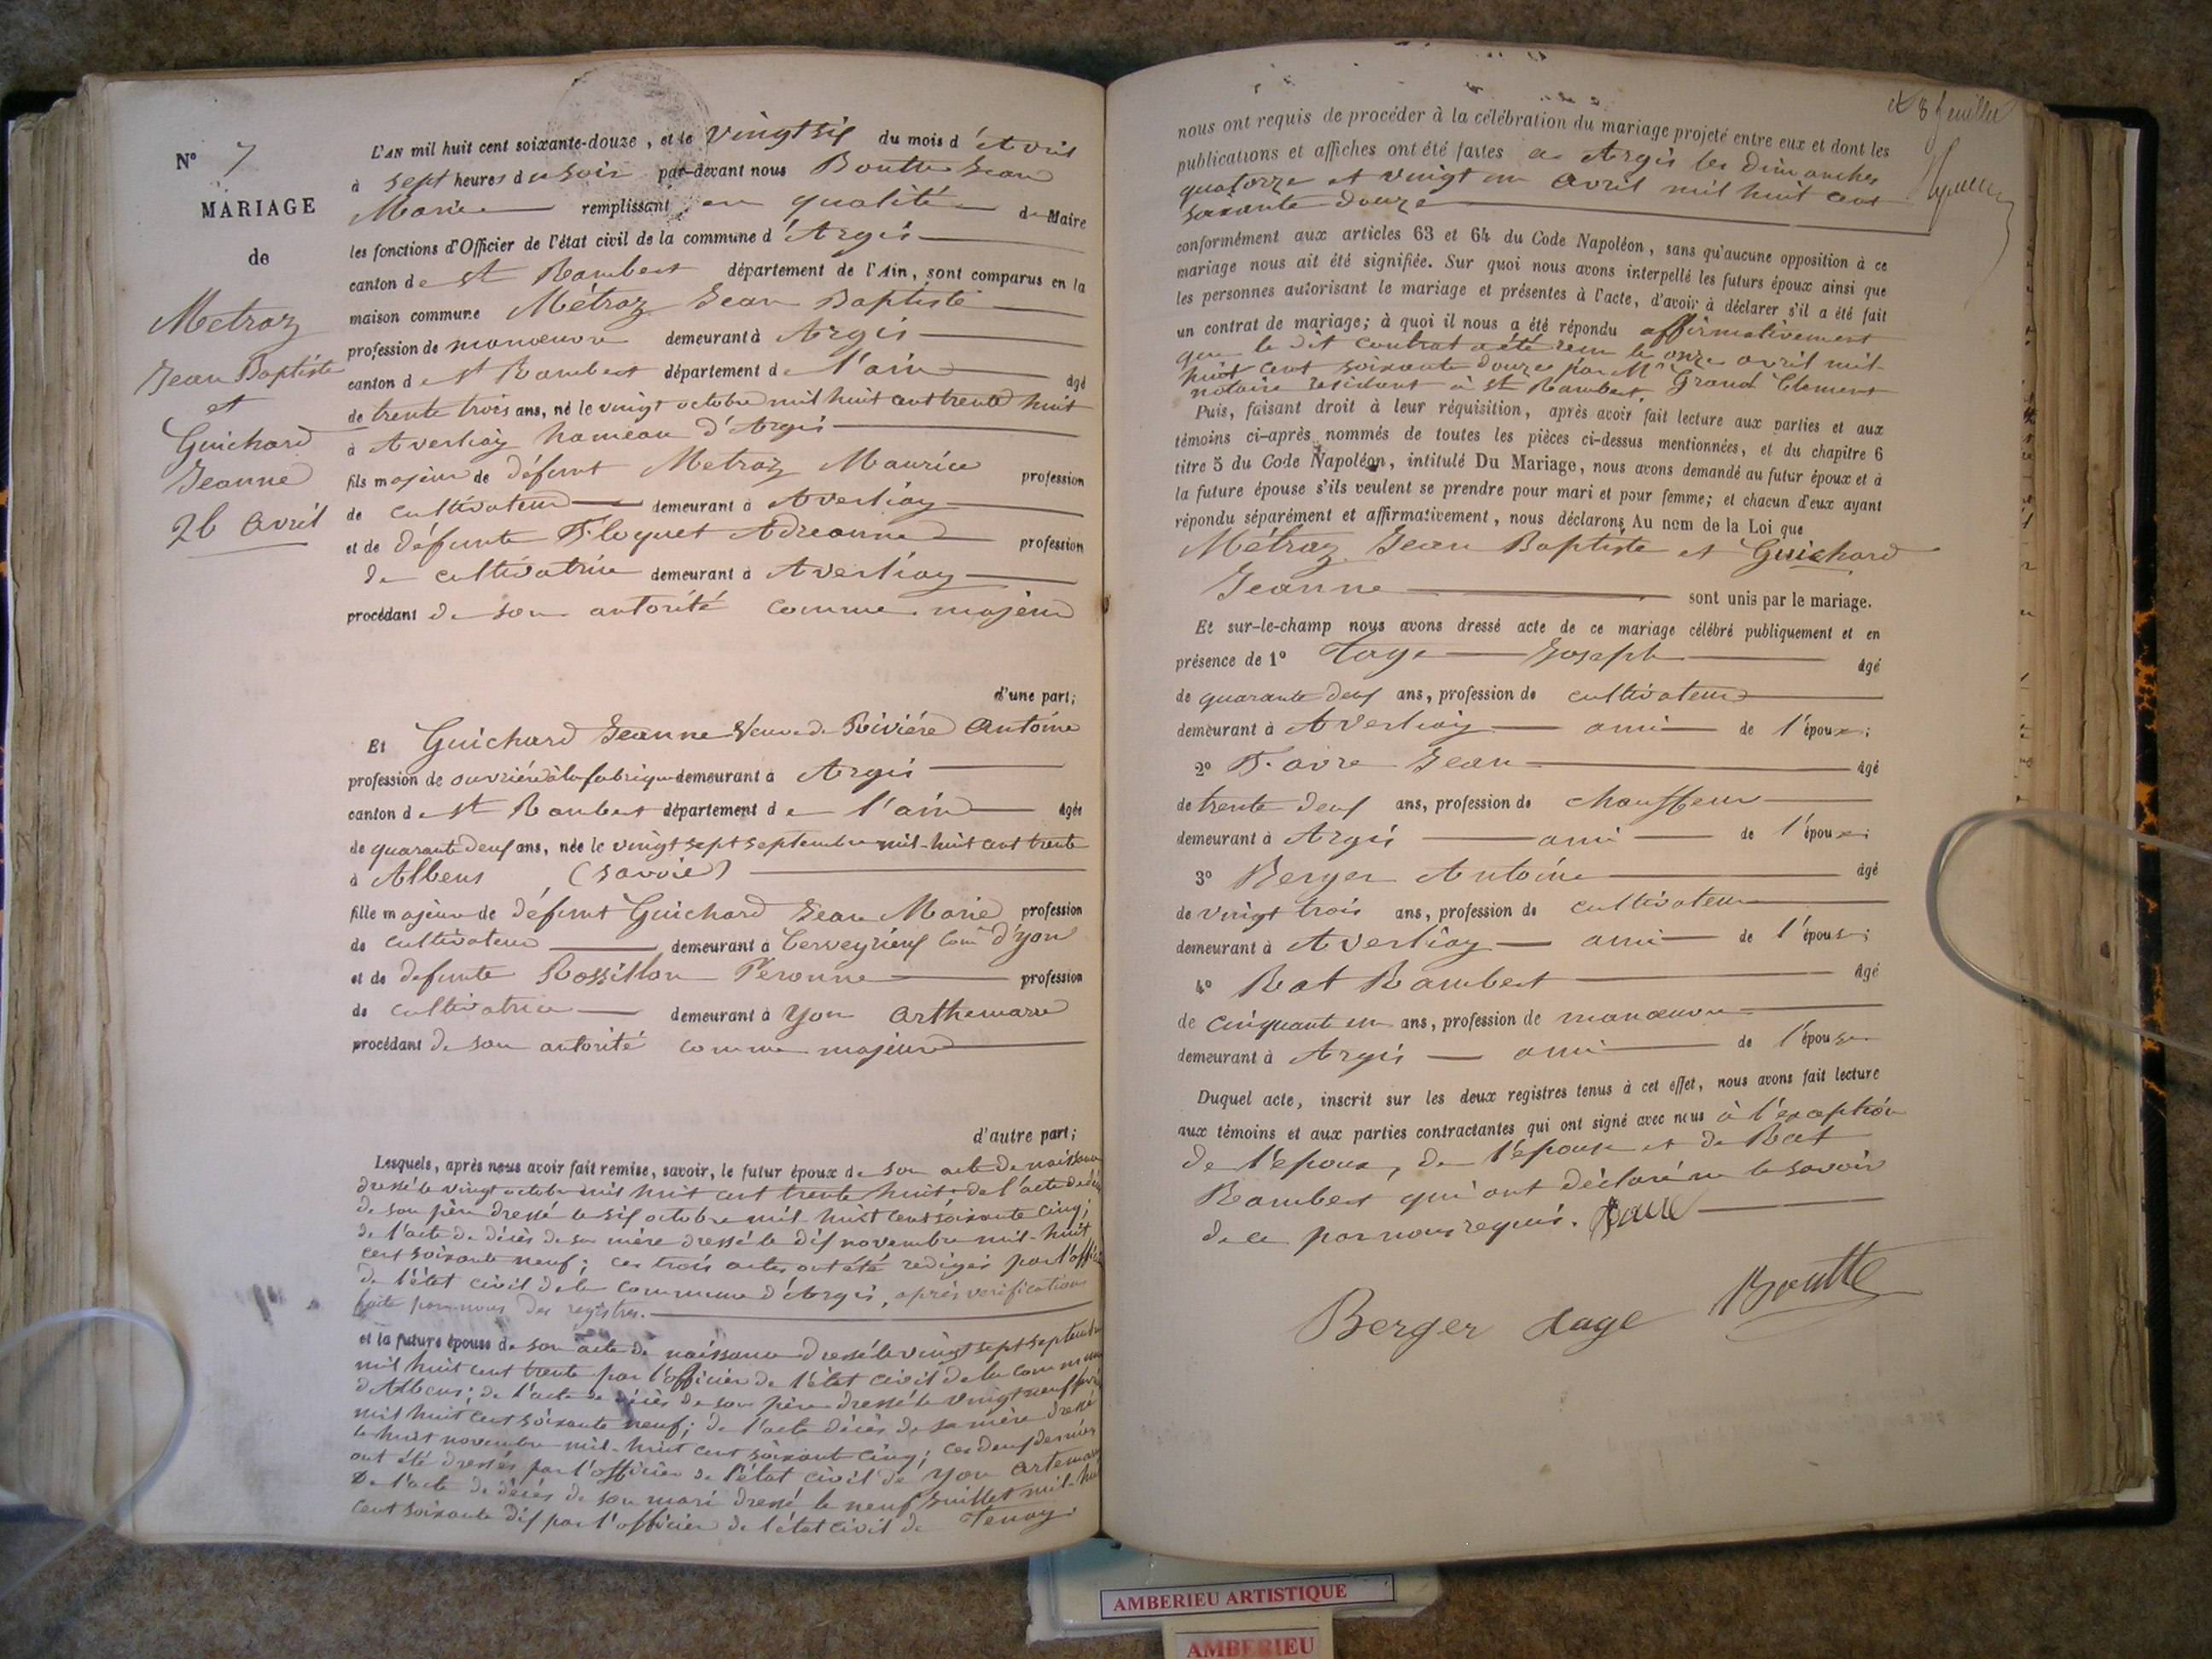 N° 7
MARIAGE
de
Metraz
Jean Baptiste
et
Guichard
Jeanne
26 avril
L'AN mil huit cent soixante-douze, et le vingt six du mois d'Avril
à sept heures du soir par-devant nous Boutte Jean
Marie remplissant en qualité de Maire
les fonctions d'Officier de l'état civil de la commune d'Argis
canton de St Rambert département de l'Ain, sont comparus en la
maison commune Métraz Jean Baptiste
profession de manoeuvre demeurant à Argis
canton de St Rambert département de l'ain âgé
de trente trois ans, né le vingt octobre mil huit cent trente huit
à Averliaz hameau d'Argis
fils majeur de défunt Metraz Maurice profession
de cultivateur demeurant à Averliaz
et de défunte Floquet Adreanne profession
de cultivatrice demeurant à Averliaz
procédant de son autorité comme majeur
d'une part;
Et Guichard Jeanne Veuve de Rivière Antoine
profession de ouvrière à la fabrique demeurant à Argis
canton de St Rambert département de l'ain âgée
de quarante deux ans, née le vingt sept septembre mil-huit cent trente
à Albens (Savoie)
fille majeure de défunt Guichard Jean Marie profession
de cultivateur demeurant à Cerveyrieux Com d'Yon
et de défunte Rossillon Peronne profession
de cultivatrice demeurant à Yon Arthemare
procédant de son autorité comme majeure
d'autre part;
Lesquels, après nous avoir fait remise, savoir, le futur époux de son acte de naissance
dressé le vingt octobre mil huit cent trente huit; de l'acte de décès
de son père dressé le six octobre mil-huit cent soixante cinq;
de l'acte de décès de sa mère dressé le dix novembre mil-huit
cent soixante neuf; ces trois actes ont été redigés par l'officier
de l'état civil de la commune d'Argis, après verification
faite par nous des registres.
et la future épouse de son acte de naissance dressé le vingt sept septembre
mil huit cent trente par l'officier de l'état civil de la commune
d'Albens; de l'acte de décès de son père dressé le vingt neuf
mil huit cent soixante neuf; de l'acte décès de sa mère dressé
le huit novembre mil-huit cent soixante cinq; ces deux derniers
ont été dressés par l'officier de l'état civil de Yon Artemare
De l'acte de décès de son mari dressé le neuf Juillet mil-huit
cent soixante dix par l'officier de l'état civil de Tenay.
8 feuillet
nous ont requis de procéder à la célébration du mariage projeté entre eux et dont les
publications et affiches ont été faites a Argis les dimanches
quatorze et vingt un avril mil huit cent
soixante douze
conformément aux articles 63 et 64 du Code Napoléon, sans qu'aucune opposition à ce
mariage nous ait été signifiée. Sur quoi nous avons interpellé les futurs époux ainsi que
les personnes autorisant le mariage et présentes à l'acte, d'avoir à déclarer s'il a été fait
un contrat de mariage; à quoi il nous a été répondu affirmativement
que le dit contrat a été reçu le onze avril mil-
huit cent soixante douze par Me Grand Clement
notaire résidant à St Rambert.
Puis, faisant droit à leur réquisition, après avoir fait lecture aux parties et aux
témoins ci-après nommés de toutes les pièces ci-dessus mentionnées, et du chapitre 6
titre 5 du Code Napoléon, intitulé Du Mariage, nous avons demandé au futur époux et à
la future épouse s'ils veulent se prendre pour mari et pour femme; et chacun d'eux ayant
répondu séparément et affirmativement, nous déclarons Au nom de la Loi que
Métraz Jean Baptiste et Guichard
Jeanne sont unis par le mariage.
Et sur-le-champ nous avons dressé acte de ce mariage célébré publiquement et en
présence de 1° Tage Joseph âgé
de quarante deux ans, profession de cultivateur
demeurant à Averliaz ami de l'époux;
2° Favre Jean âgé
de trente deux ans, profession de chauffeur
demeurant à Argis ami de l'époux;
3° Berger Antoine âgé
de vingt trois ans, profession de cultivateur
demeurant à Averliaz ami de l'épouse;
4° Rat Rambert âgé
de cinquante un ans, profession de manoeuvre
demeurant à Argis ami de l'épouse
Duquel acte, inscrit sur les deux registres tenus à cet effet, nous avons fait lecture
aux témoins et aux parties contractantes qui ont signé avec nous à l'exception
de l'époux, de l'épouse et de Rat
Rambert qui ont déclaré ne le savoir
de ce par nous requis.
Berger Tage Boutte
AMBERIEU ARTISTIQUE
AMBERIEU